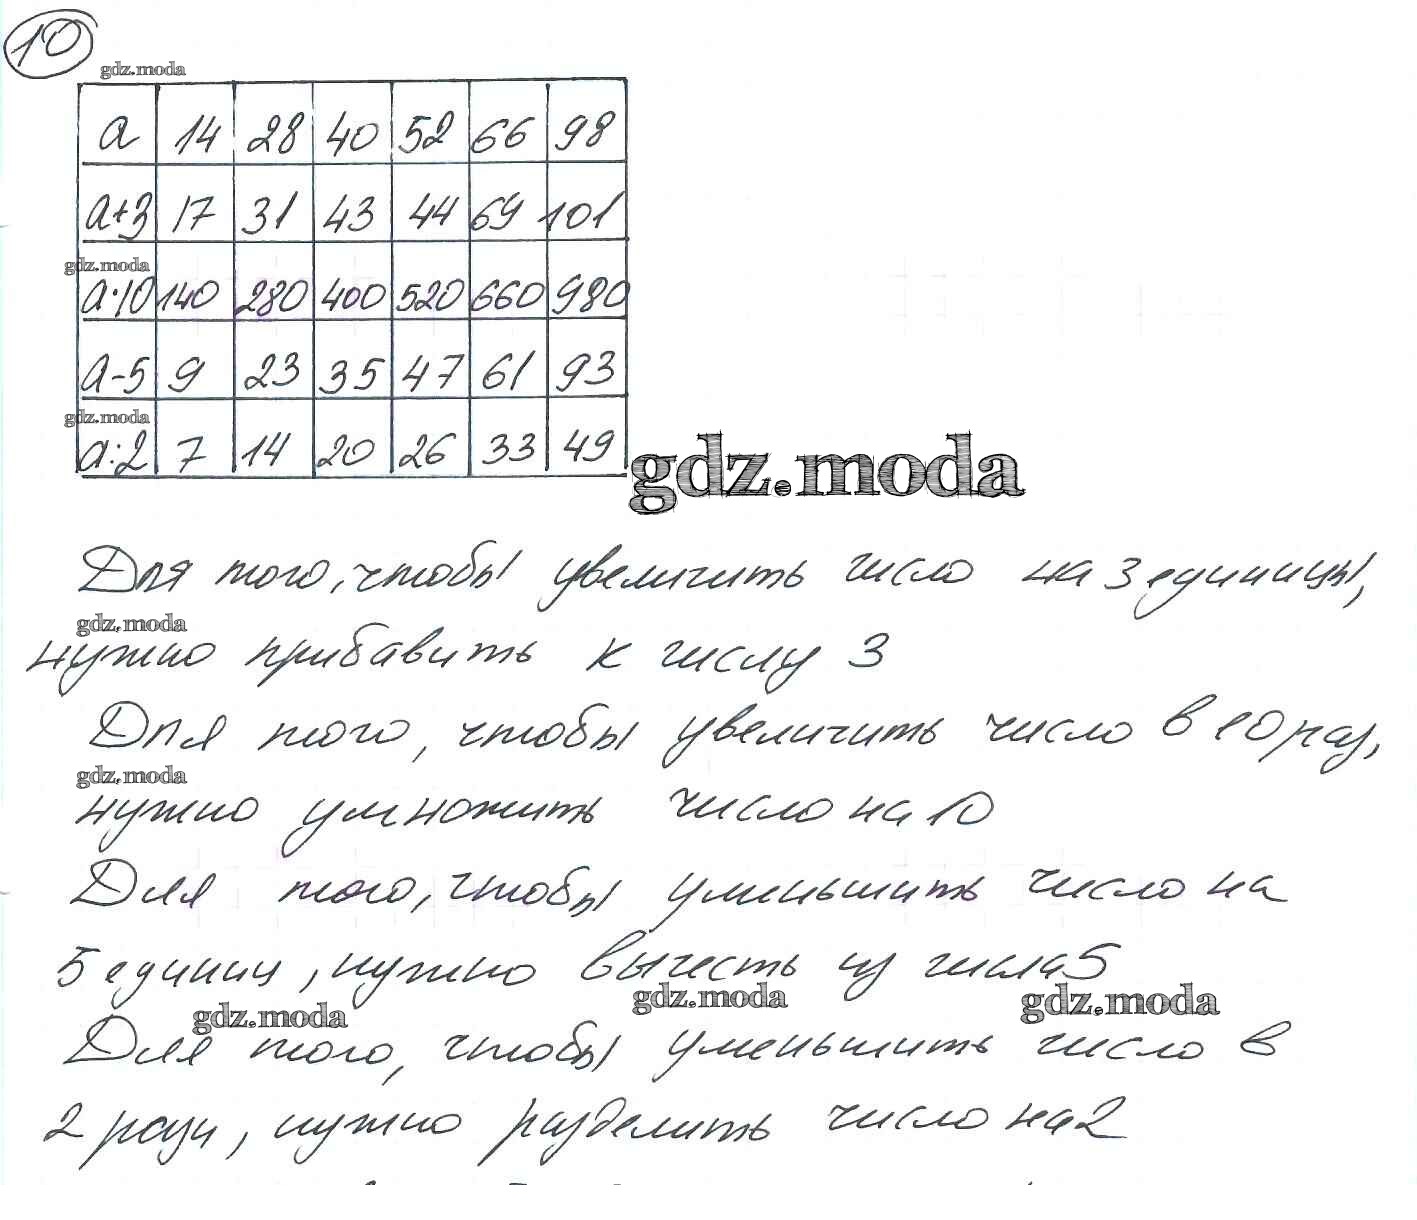 10
gdz.moda
a 14 28 40 52 66 98
a+3 17 31 43 44 69 101
gdz.moda
a·10 140 280 400 520 660 980
a-5 9 23 35 47 61 93
gdz.moda
a:2 7 14 20 26 33 49
gdz.moda
Для того, чтобы увеличить число на 3 единицы,
gdz.moda
нужно прибавить к числу 3
Для того, чтобы увеличить число в 10 раз,
gdz.moda
нужно умножить число на 10
Для того, чтобы уменьшить число на
5 единиц, нужно вычесть из числа 5
gdz.moda gdz.moda gdz.moda
Для того, чтобы уменьшить число в
2 раза, нужно разделить число на 2